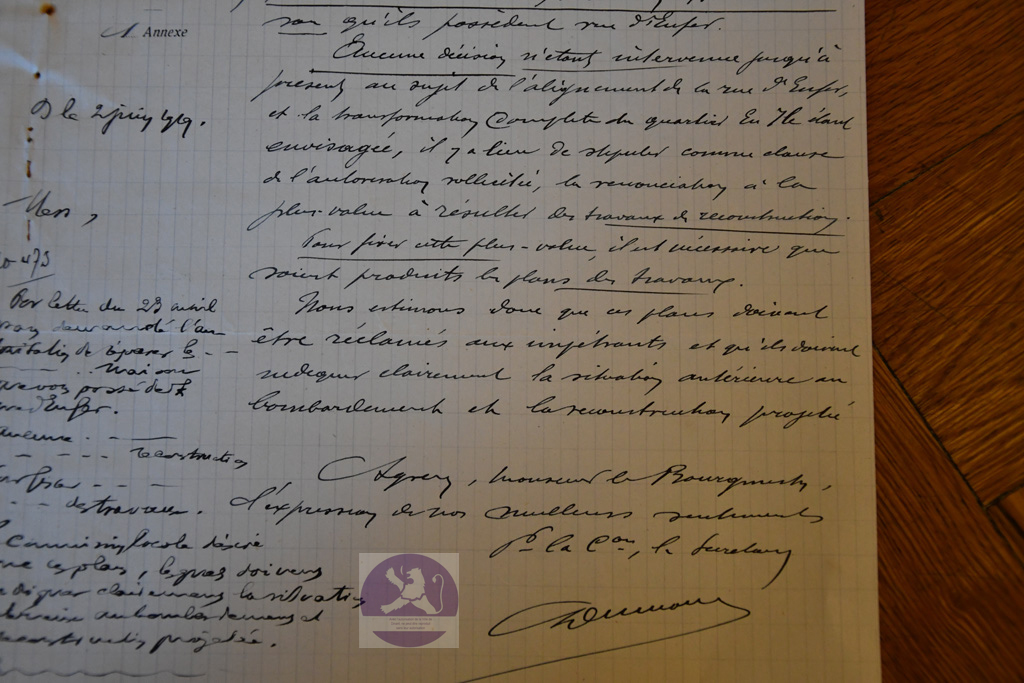 1 Annexe
son qu'ils possèdent rue d'Enfer.
Aucune décision n'étant intervenue jusqu'à
présent au sujet de l'alignement de la rue d'Enfer,
et la transformation complète du quartier En Ile étant
envisagée, il y a lieu de stipuler comme clause
de l'autorisation sollicitée, la renonciation à la
plus-value à résulter des travaux de reconstruction.
Pour fixer cette plus-value, il est nécessaire que
soient produits les plans des travaux.
Nous estimons donc que ces plans doivent
être réclamés aux impétrants et qu'ils doivent
indiquer clairement la situation antérieure au
bombardement et la reconstruction projetée
Agréez, Monsieur le Bourgmestre,
l'expression de nos meilleurs sentiments
Pr la Con, le Secrétaire
D le 2 juin 1919.
Mess,
473
Par lettre du 23 avril
demandé l'au
de réparer la - -
maison
avez possédez
d'Enfer.
aucune - - -
- - - - reconstruction
- - -
- - des travaux.
Commission locale désire
ces plans, lesquels doivent
indiquer clairement la situation
antérieure au bombardement et
reconstruction projetée.